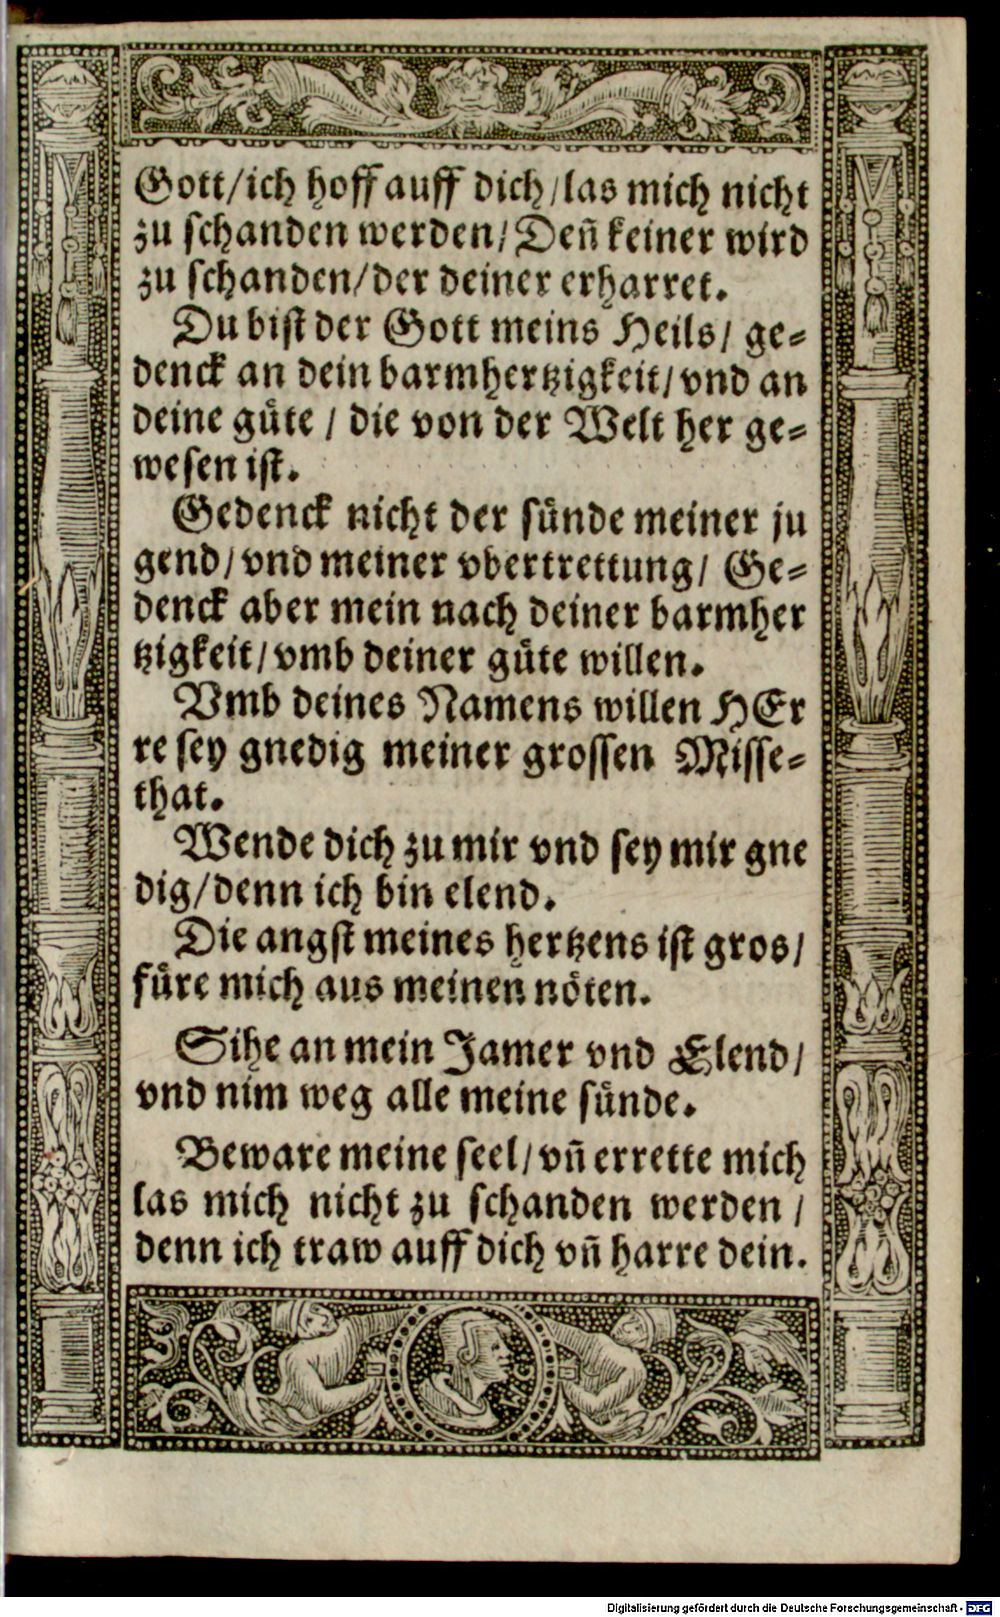 Gott/ich hoff auff dich/las mich nicht
zu schanden werden/Deñ keiner wird
zu schanden/der deiner erharret.
Du bist der Gott meins Heils/ ge⸗
denck an dein barmhertzigkeit/vnd an
deine guͤte / die von der Welt her ge⸗
wesen ist.
Gedenck nicht der suͤnde meiner ju
gend/vnd meiner vbertrettung/ Ge⸗
denck aber mein nach deiner barmher
tzigkeit/vmb deiner guͤte willen.
Vmb deines Namens willen HEr
re sey gnedig meiner grossen Misse⸗
that.
Wende dich zu mir vnd sey mir gne
dig/denn ich bin elend.
Die angst meines hertzens ist gros/
fuͤre mich aus meinen noͤten.
Sihe an mein Jamer vnd Elend/
vnd nim weg alle meine suͤnde.
Beware meine seel/vñ errette mich
las mich nicht zu schanden werden /
denn ich traw auff dich vñ harre dein.
Digitalisierung gefördert durch die Deutsche Forschungsgemeinschaft - DFG